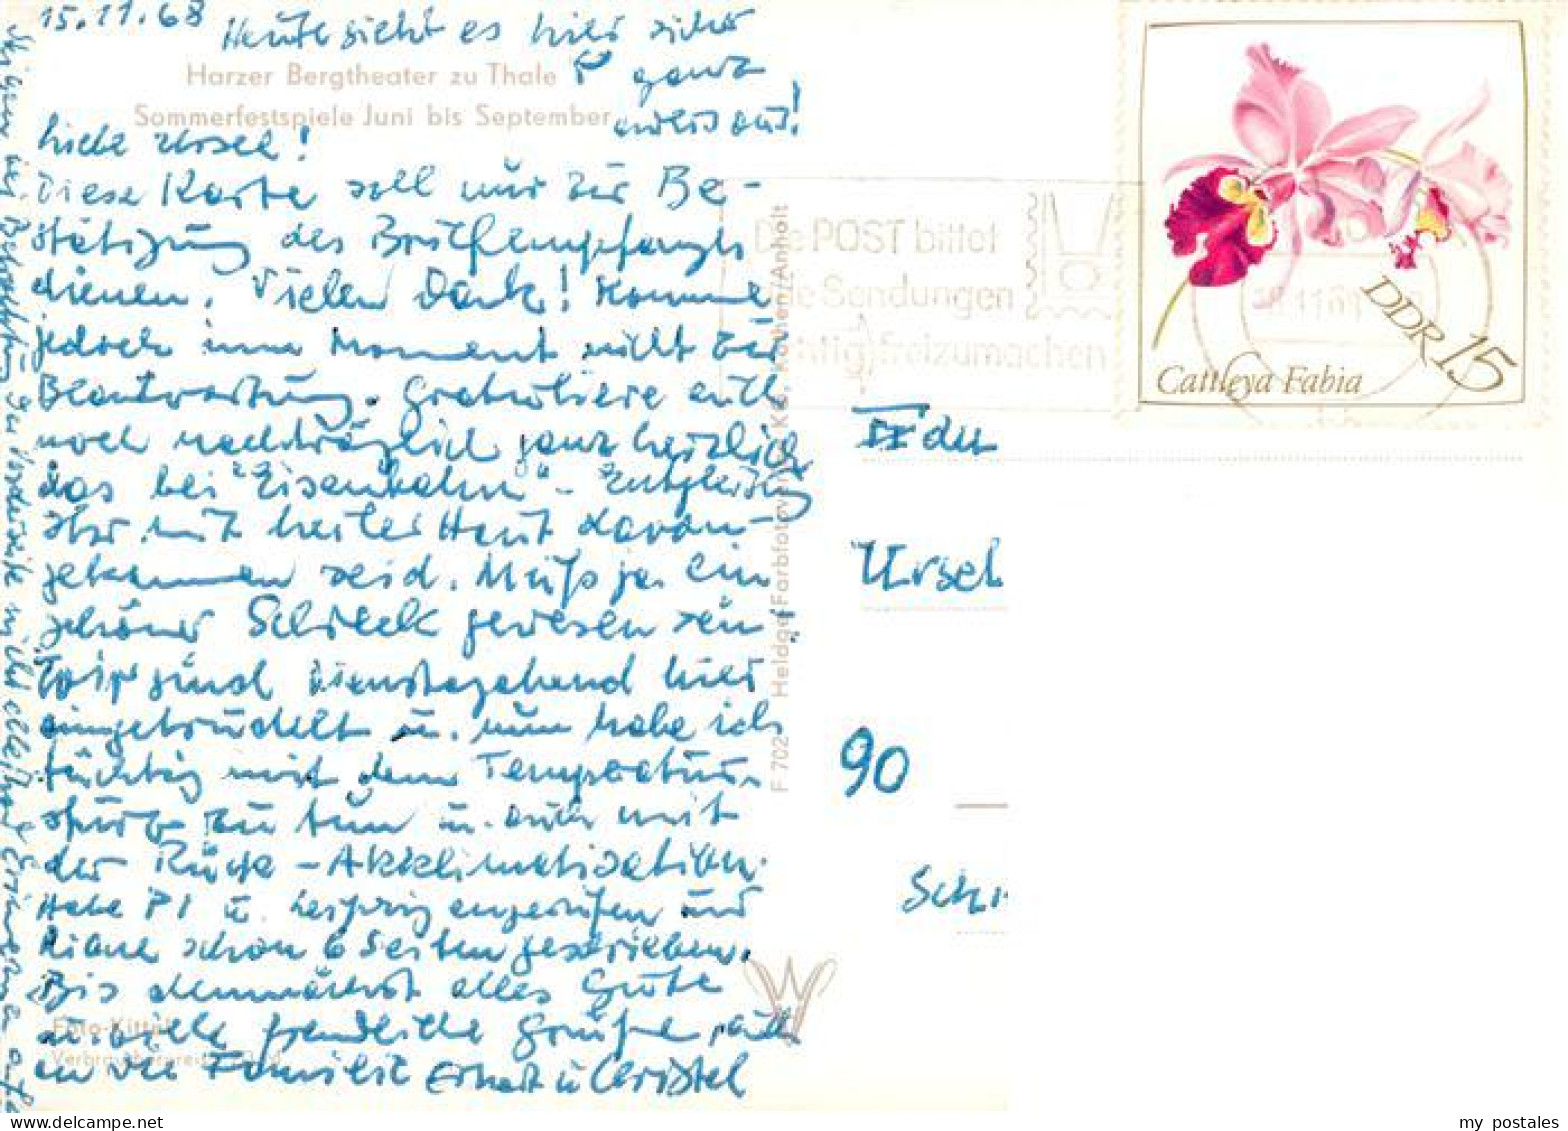 15.11.68
Heute sieht es hier sicher
ganz
anders aus!
Harzer Bergtheater zu Thale
Sommerfestspiele Juni bis September
Liebe Ursel!
Diese Karte soll nur zur Be-
stätigung des Briefempfangs
dienen. Vielen Dank! Komme
jedoch im Moment nicht zur
Beantwortung. Gratuliere euch
noch nachträglich ganz herzlich
das bei "Eisenbahn"-Entgleisung
ihr mit heiler Haut davon-
gekommen seid. Muß ja ein
schöner Schreck gewesen sein
Wir sind hier
eingetrudelt u. nun habe ich
tüchtig mit dem Temperatur-
sturz zu tun u. auch mit
der Rück-Akklimatisation.
Habe u. Leipzig angerufen und
schon 6 Seiten geschrieben.
Bis demnächst alles Gute
viele freundliche Grüße, auch
an die Familie Erhart u Christel
Foto-Kittel
F 702 Heldge-Farbfotoverlag KG., Köthen/Anhalt
Die POST bittet
Sendungen
freizumachen
Cattleya Fabia
DDR 15
Ursel
90
my postales